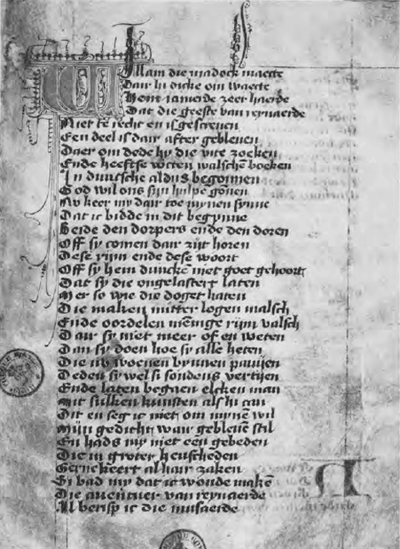 Willam die madock maecte
Dair hi dicke om waecte
Hem iamerde zeer haerde
Dat die geeste van reynaerde
Niet te recht en is gescreuen
Een deel is dair after gebleuen
Daer om dede hy die vite zoeken
Ende heeftse wten walsche boeken
In duutsche aldus begonnen
God wil ons sijn hulpe gonen
Nv keer my dair toe mynen synne
Dat ic bidde in dit begynne
Beide den dorpers ende den doren
Off sy comen dair zijt horen
Dese rijm ende dese woort
Off sy hem duncken niet goet gehoort
Dat sy die ongelastert laten
Mer so wie die doget haten
Die maken mitter logen malsch
Ende oordelen menige rijm valsch
Dair sy niet meer of en weten
Dan sy doen hoe sy alle heten
Die nv woenen bynnen pauijen
Deden sy wel si sondens vertijen
Ende laten begaen elcken man
Mit sulken kunsten als hi can
Dit en seg ic niet om mynen wil
Mijn gedicht wair gebleuen stil
En hads my niet een gebeden
Die in groter heuscheden
Gerne keert al hair zaken
Si bad my dat ic woude maken
Die auentuer van reynaerde
Al berisp ic die